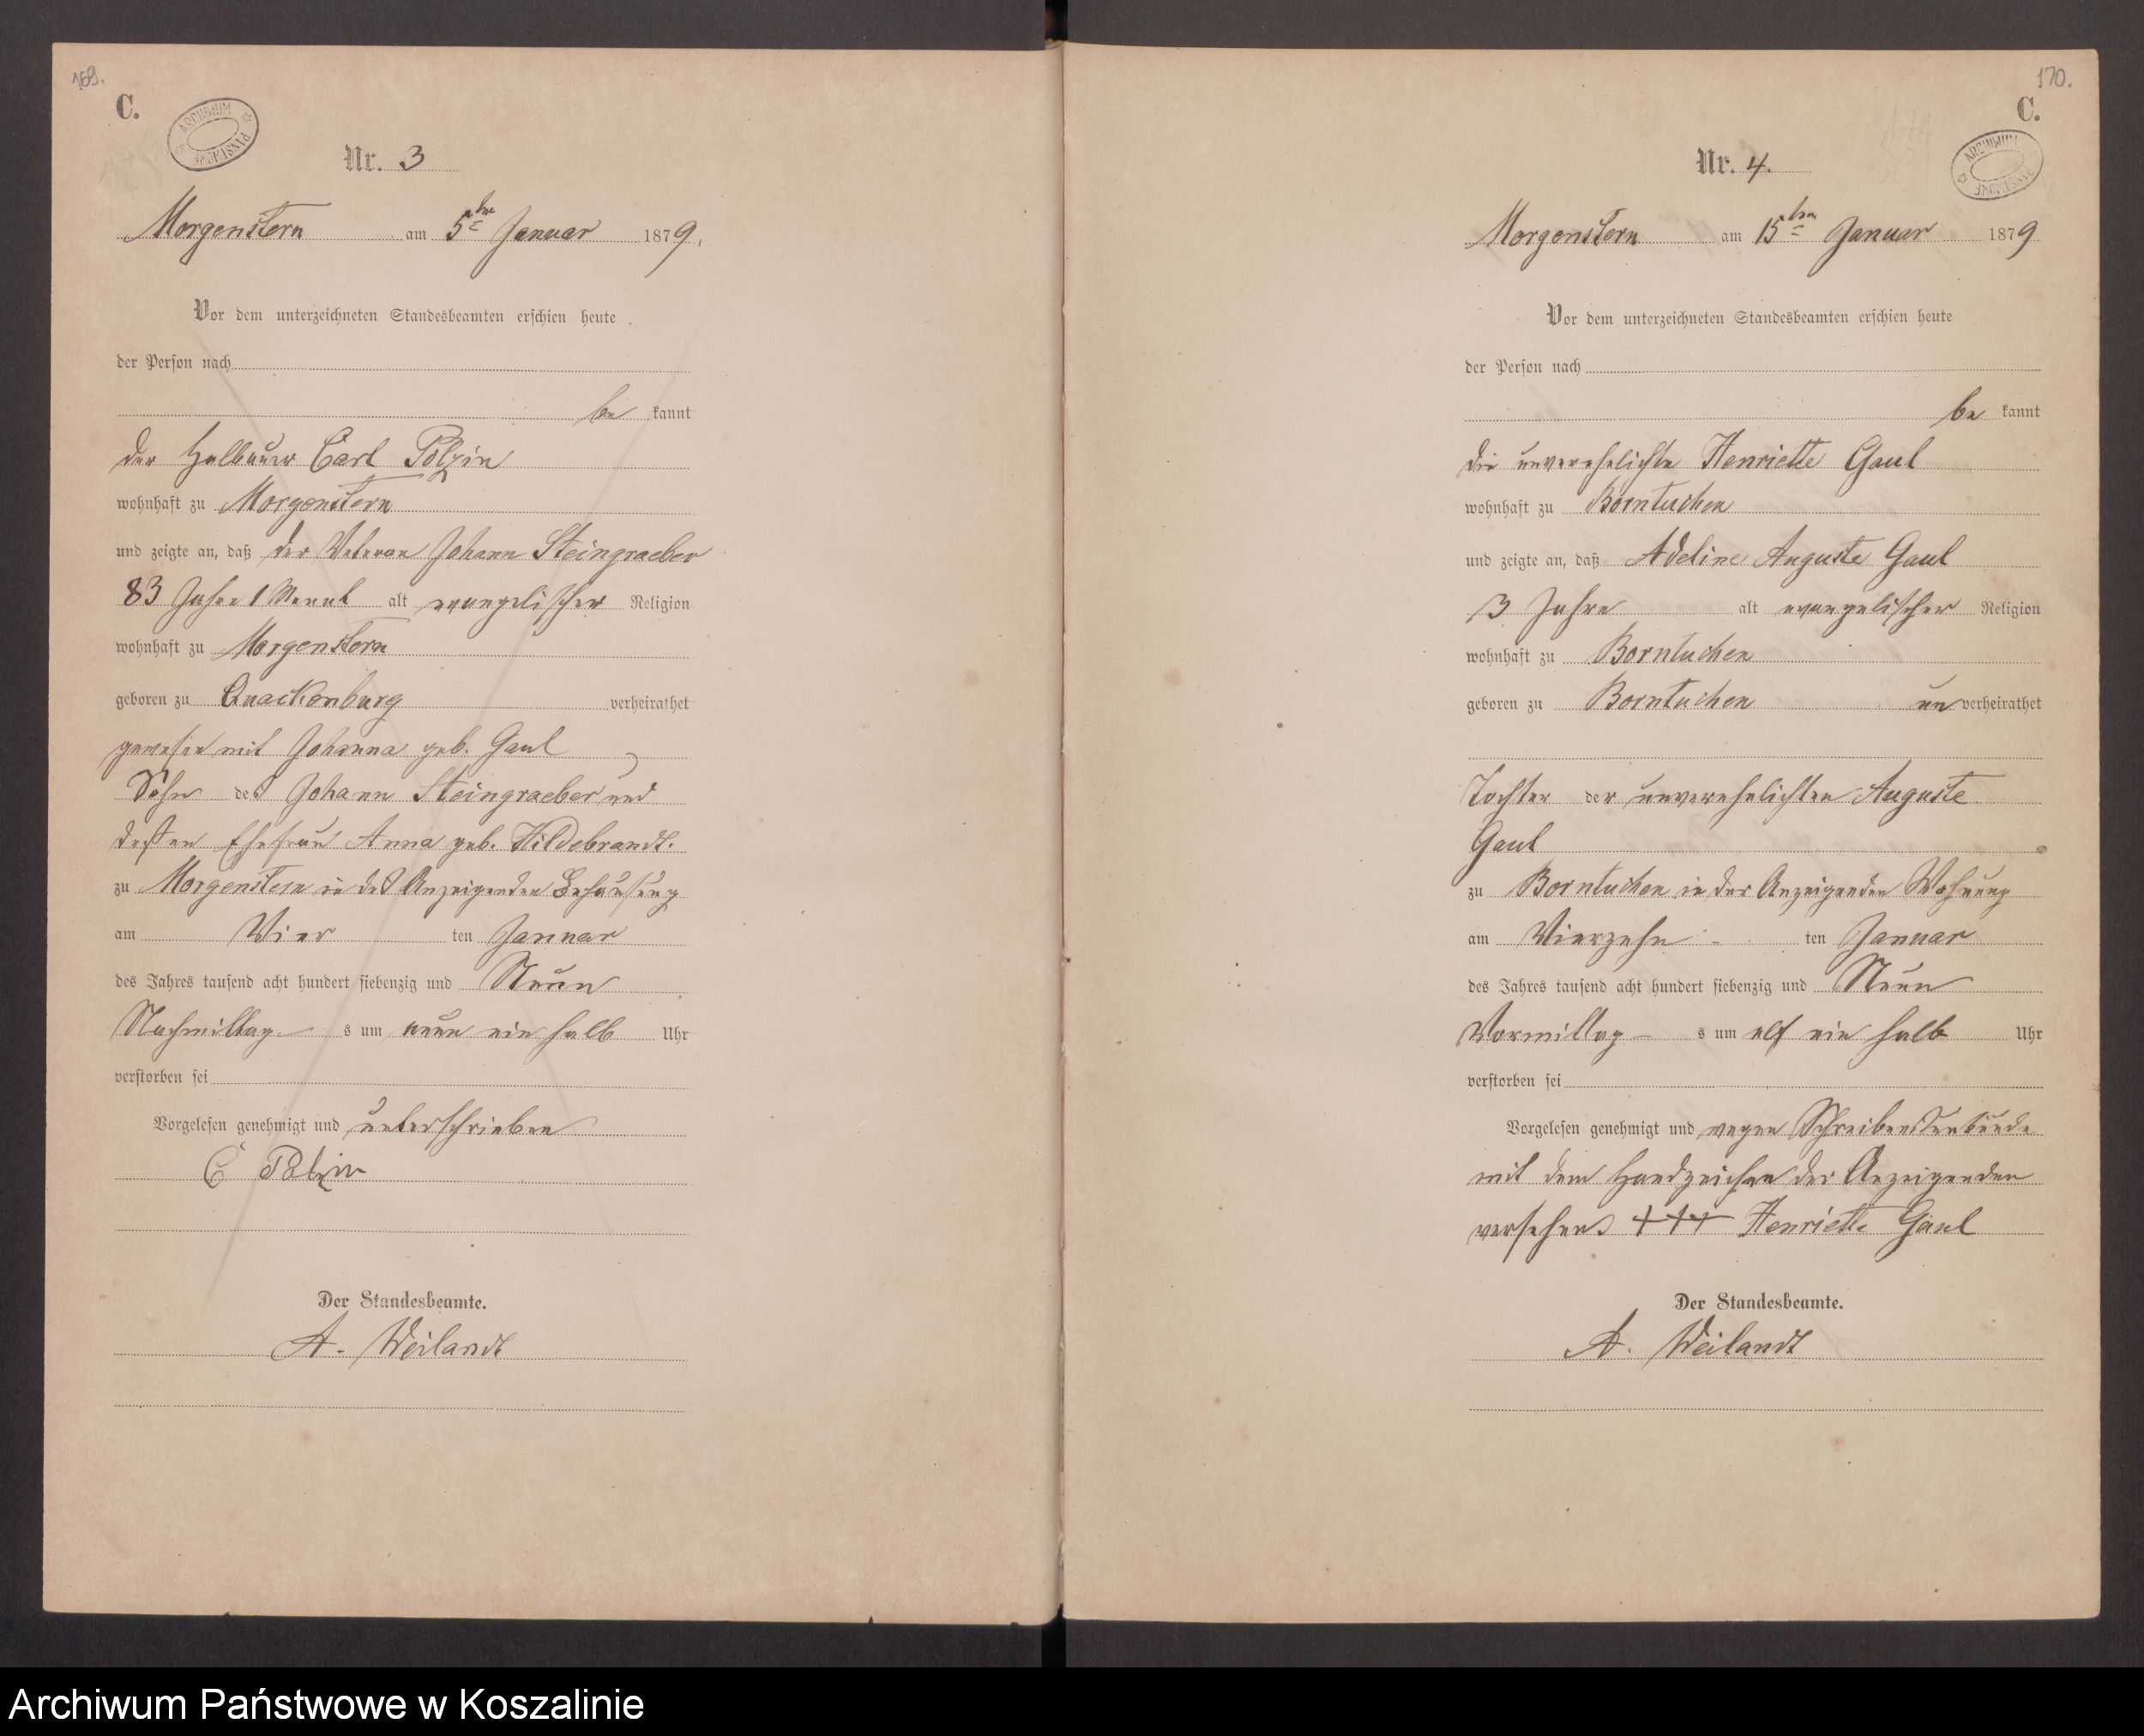 169.
C.
ARCHIWUM PAŃSTWOWE
Nr. 3
Morgenstern am 5ten Januar 1879.
Vor dem unterzeichneten Standesbeamten erschien heute
der Person nach
be kannt
der Halbbauer Carl Polzin
wohnhaft zu Morgenstern
und zeigte an, daß der Veteran Johann Steingraeber
83 Jahre 1 Monat alt evangelischer Religion
wohnhaft zu Morgenstern
geboren zu Quackenburg verheirathet
gewesen mit Johanna geb. Gaul
Sohn des Johann Steingraeber und
dessen Ehefrau Anna geb. Hildebrandt.
zu Morgenstern in des Anzeigenden Behausung
am Vier ten Januar
des Jahres tausend acht hundert siebenzig und Neun
Nachmittag s um neun ein halb Uhr
verstorben sei
Vorgelesen genehmigt und unterschrieben
C Polzin
Der Standesbeamte.
A. Weilandt
170.
C.
ARCHIWUM PAŃSTWOWE
Nr. 4.
Morgenstern am 15ten Januar 1879
Vor dem unterzeichneten Standesbeamten erschien heute
der Person nach
be kannt
die unverehelichte Henriette Gaul
wohnhaft zu Borntuchen
und zeigte an, daß Adeline Auguste Gaul
3 Jahre alt evangelischer Religion
wohnhaft zu Borntuchen
geboren zu Borntuchen un verheirathet
Tochter der unverehelichten Auguste
Gaul
zu Borntuchen in der Anzeigenden Wohnung
am Vierzehn - ten Januar
des Jahres tausend acht hundert siebenzig und Neun
Vormittag s um elf ein halb Uhr
verstorben sei
Vorgelesen genehmigt und wegen Schreibensunkunde
mit dem Handzeichen der Anzeigenden
versehen +++ Henriette Gaul
Der Standesbeamte.
A. Weilandt
Archiwum Państwowe w Koszalinie